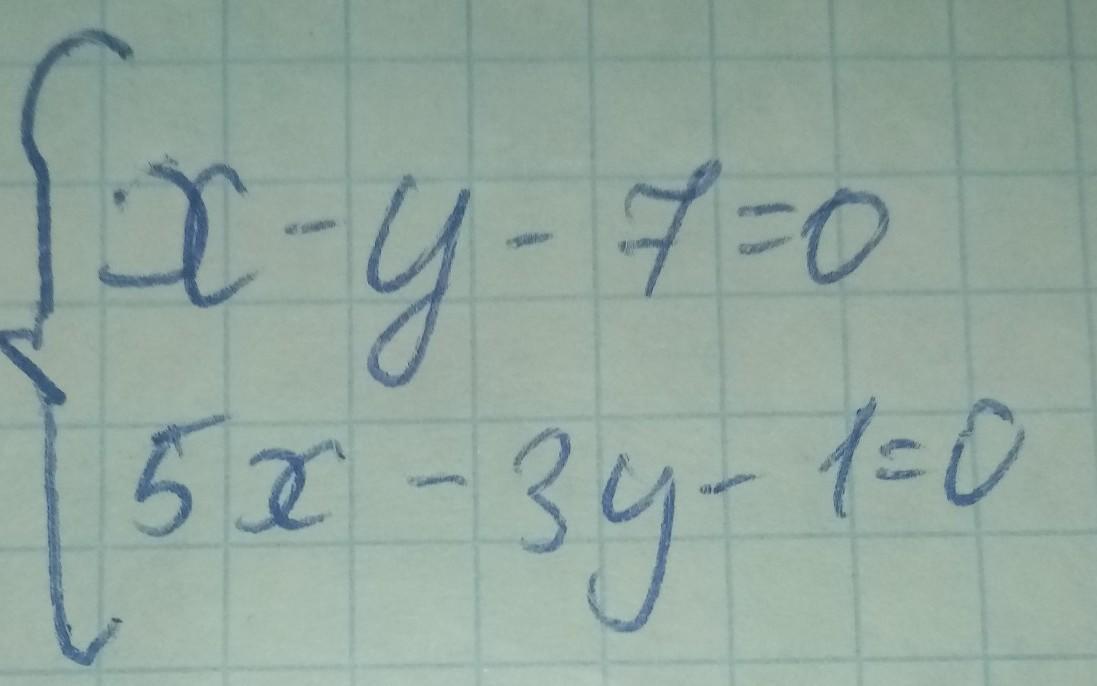 x - y - 7 = 0
5x - 3y - 1 = 0